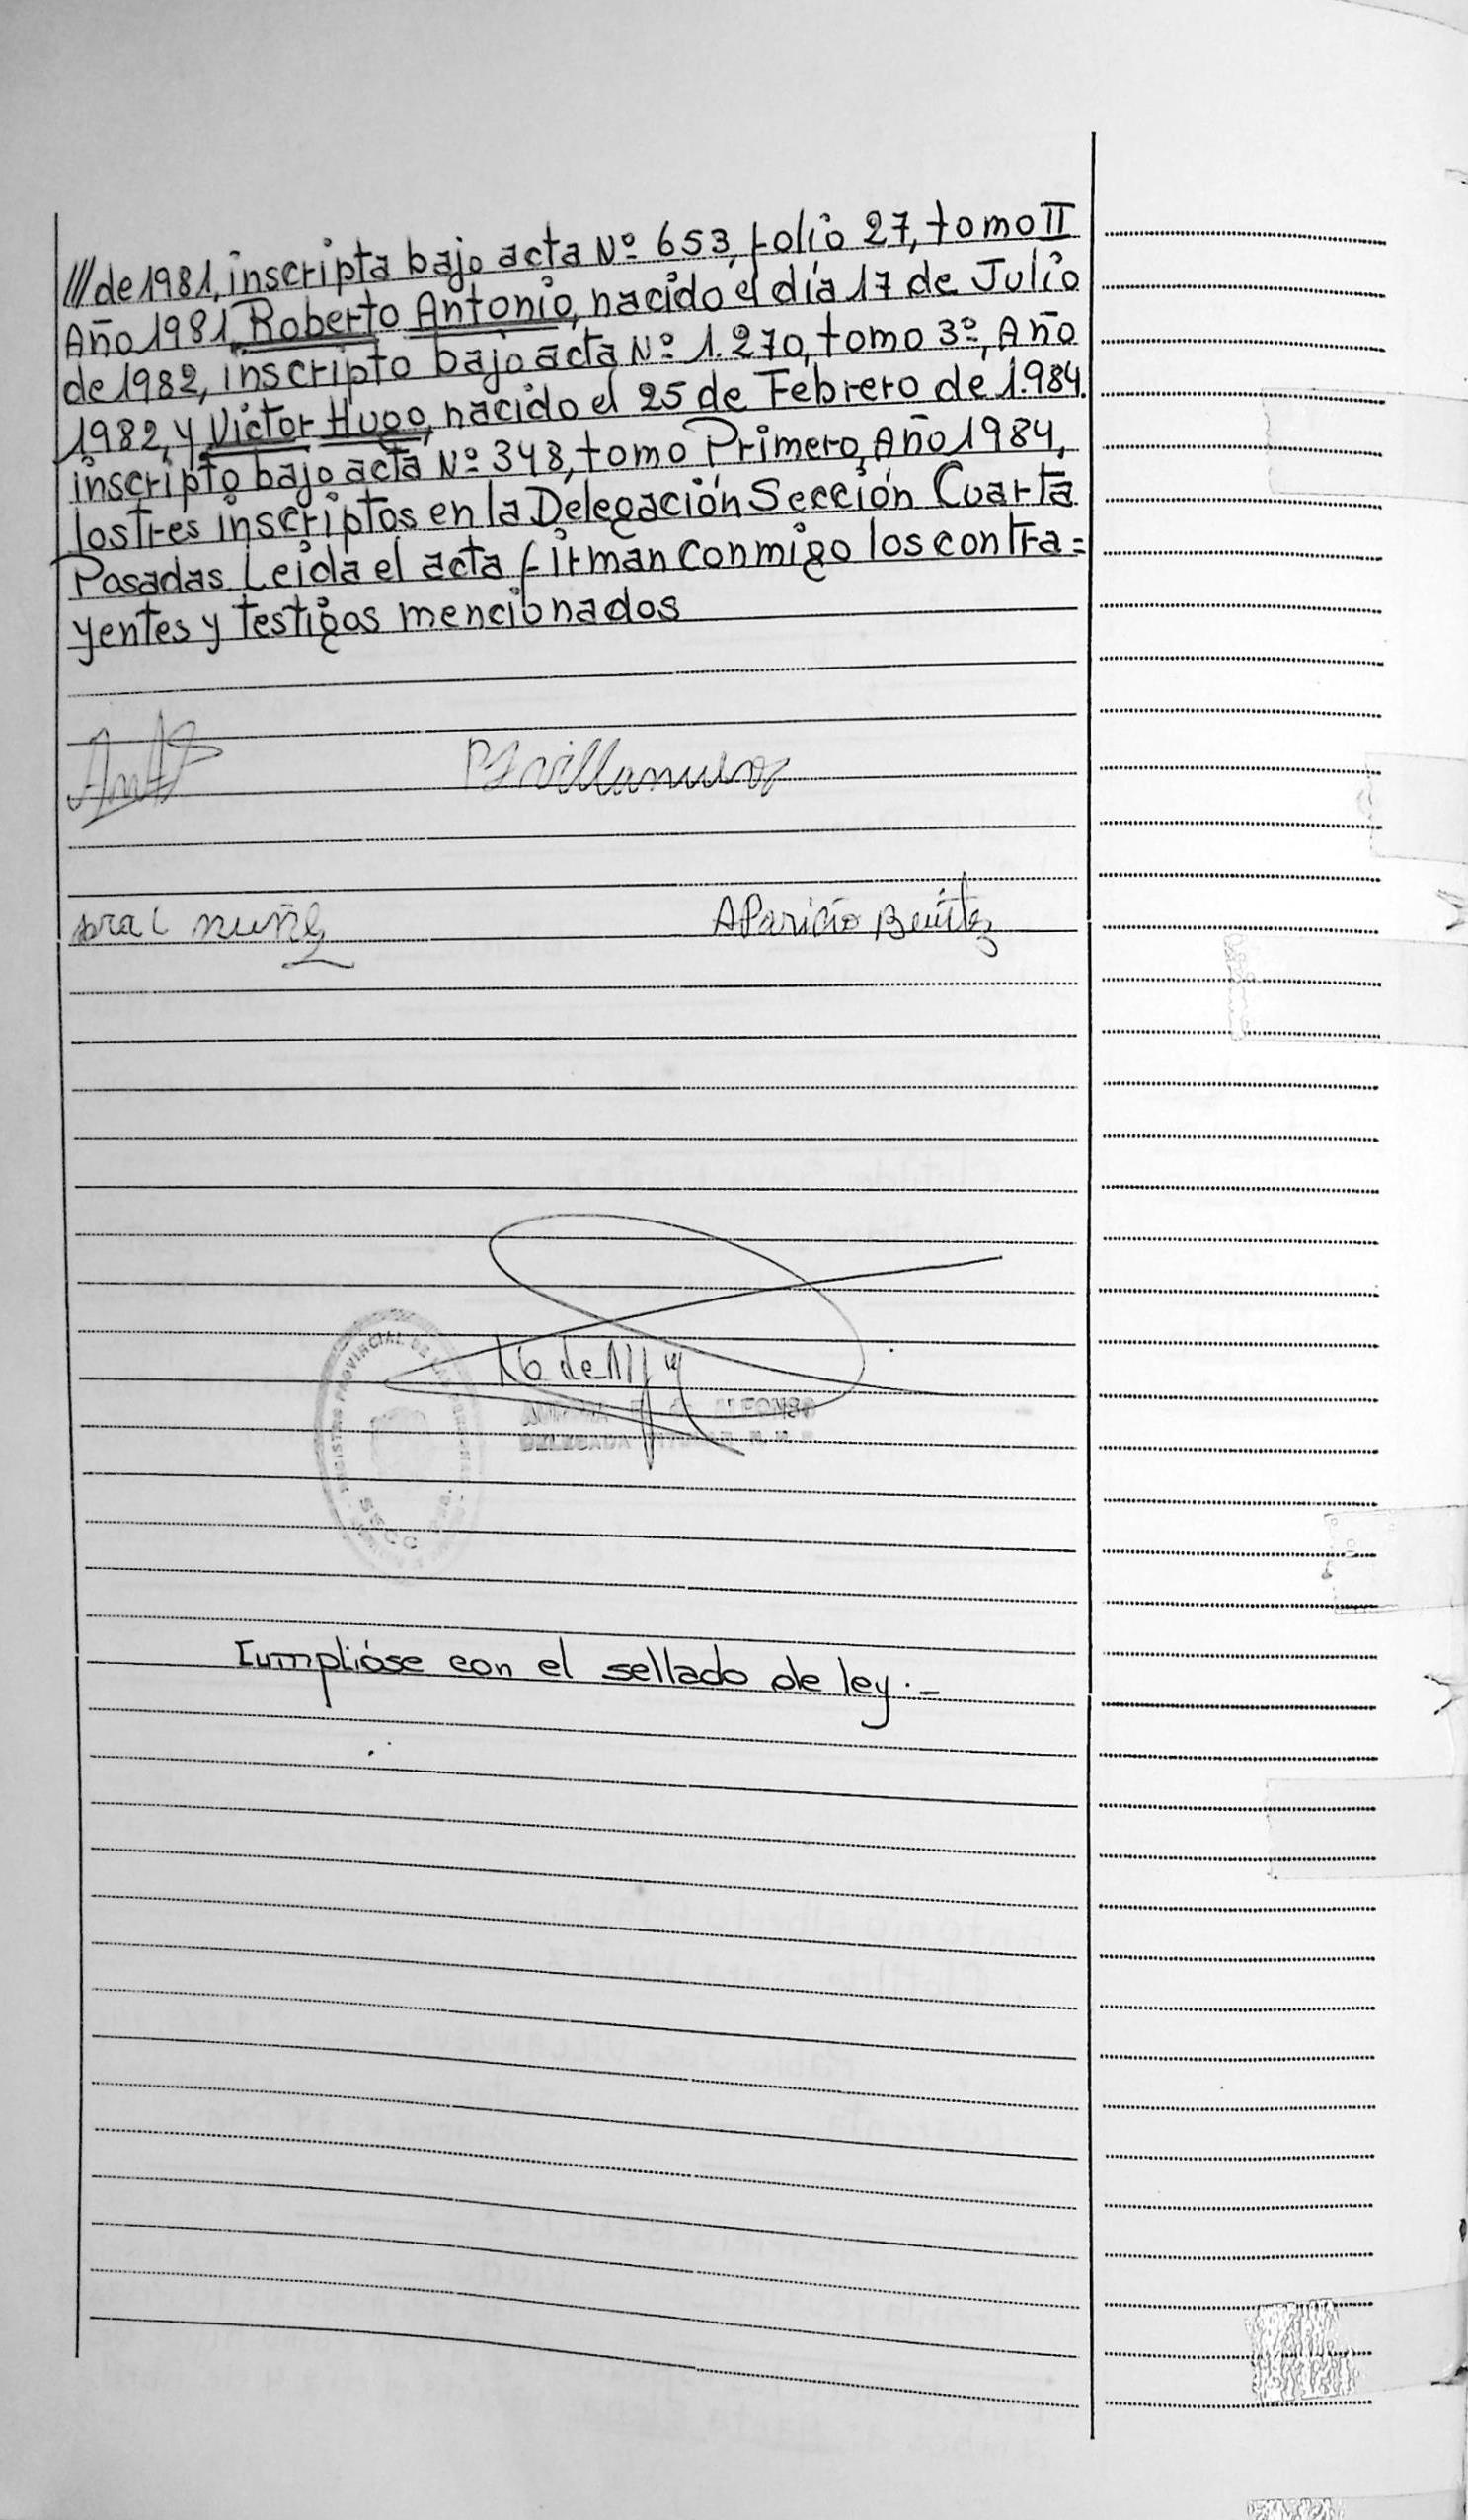 /// de 1981, inscripta bajo acta Nº 653, folio 27, tomo II
Año 1981, Roberto Antonio, nacido el día 17 de Julio
de 1982, inscripto bajo acta Nº 1.270, tomo 3º, Año
1982, y Victor Hugo, nacido el 25 de Febrero de 1.984.
inscripto bajo acta Nº 348, tomo Primero, Año 1984,
los tres inscriptos en la Delegación Sección Cuarta
Posadas. Leida el acta firman conmigo los contra=
yentes y testigos mencionados
Aparicio Benitez
REGISTRO PROVINCIAL DE LAS
ALFONSO
DELEGADA
Cumplióse con el sellado de ley.-